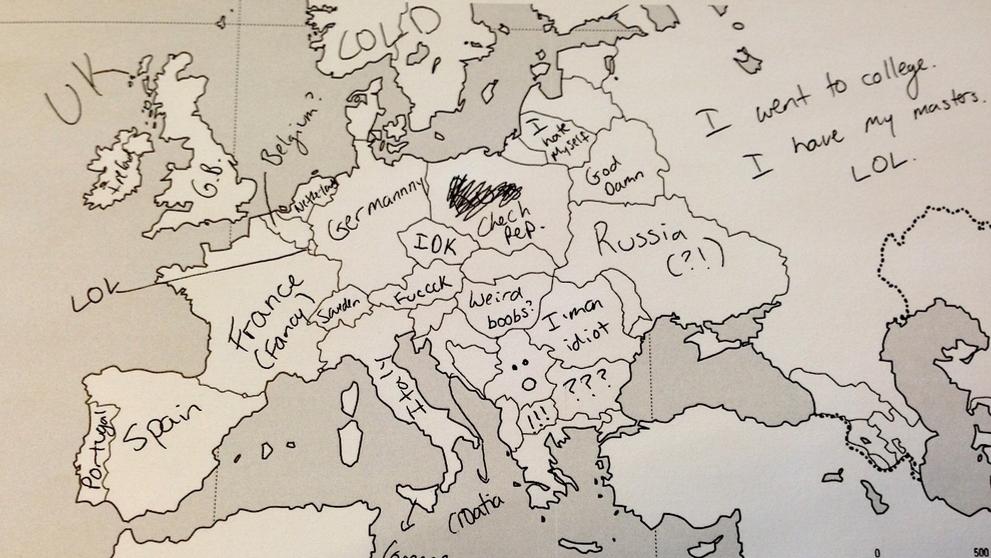 COLD
UK
Belgium?
I went to college.
I have my masters.
LOL.
Ireland
G.B.
Netherland
I
hate
myself
God
Damn
Germannny
Chech
Rep.
IDK
Russia
(?!)
LOL
France
(Fancy)
Sweden
Fuccck
Weird
boobs?
I'm an
idiot
Italy
???
!!!
Portugal
Spain
Croatia
0
500